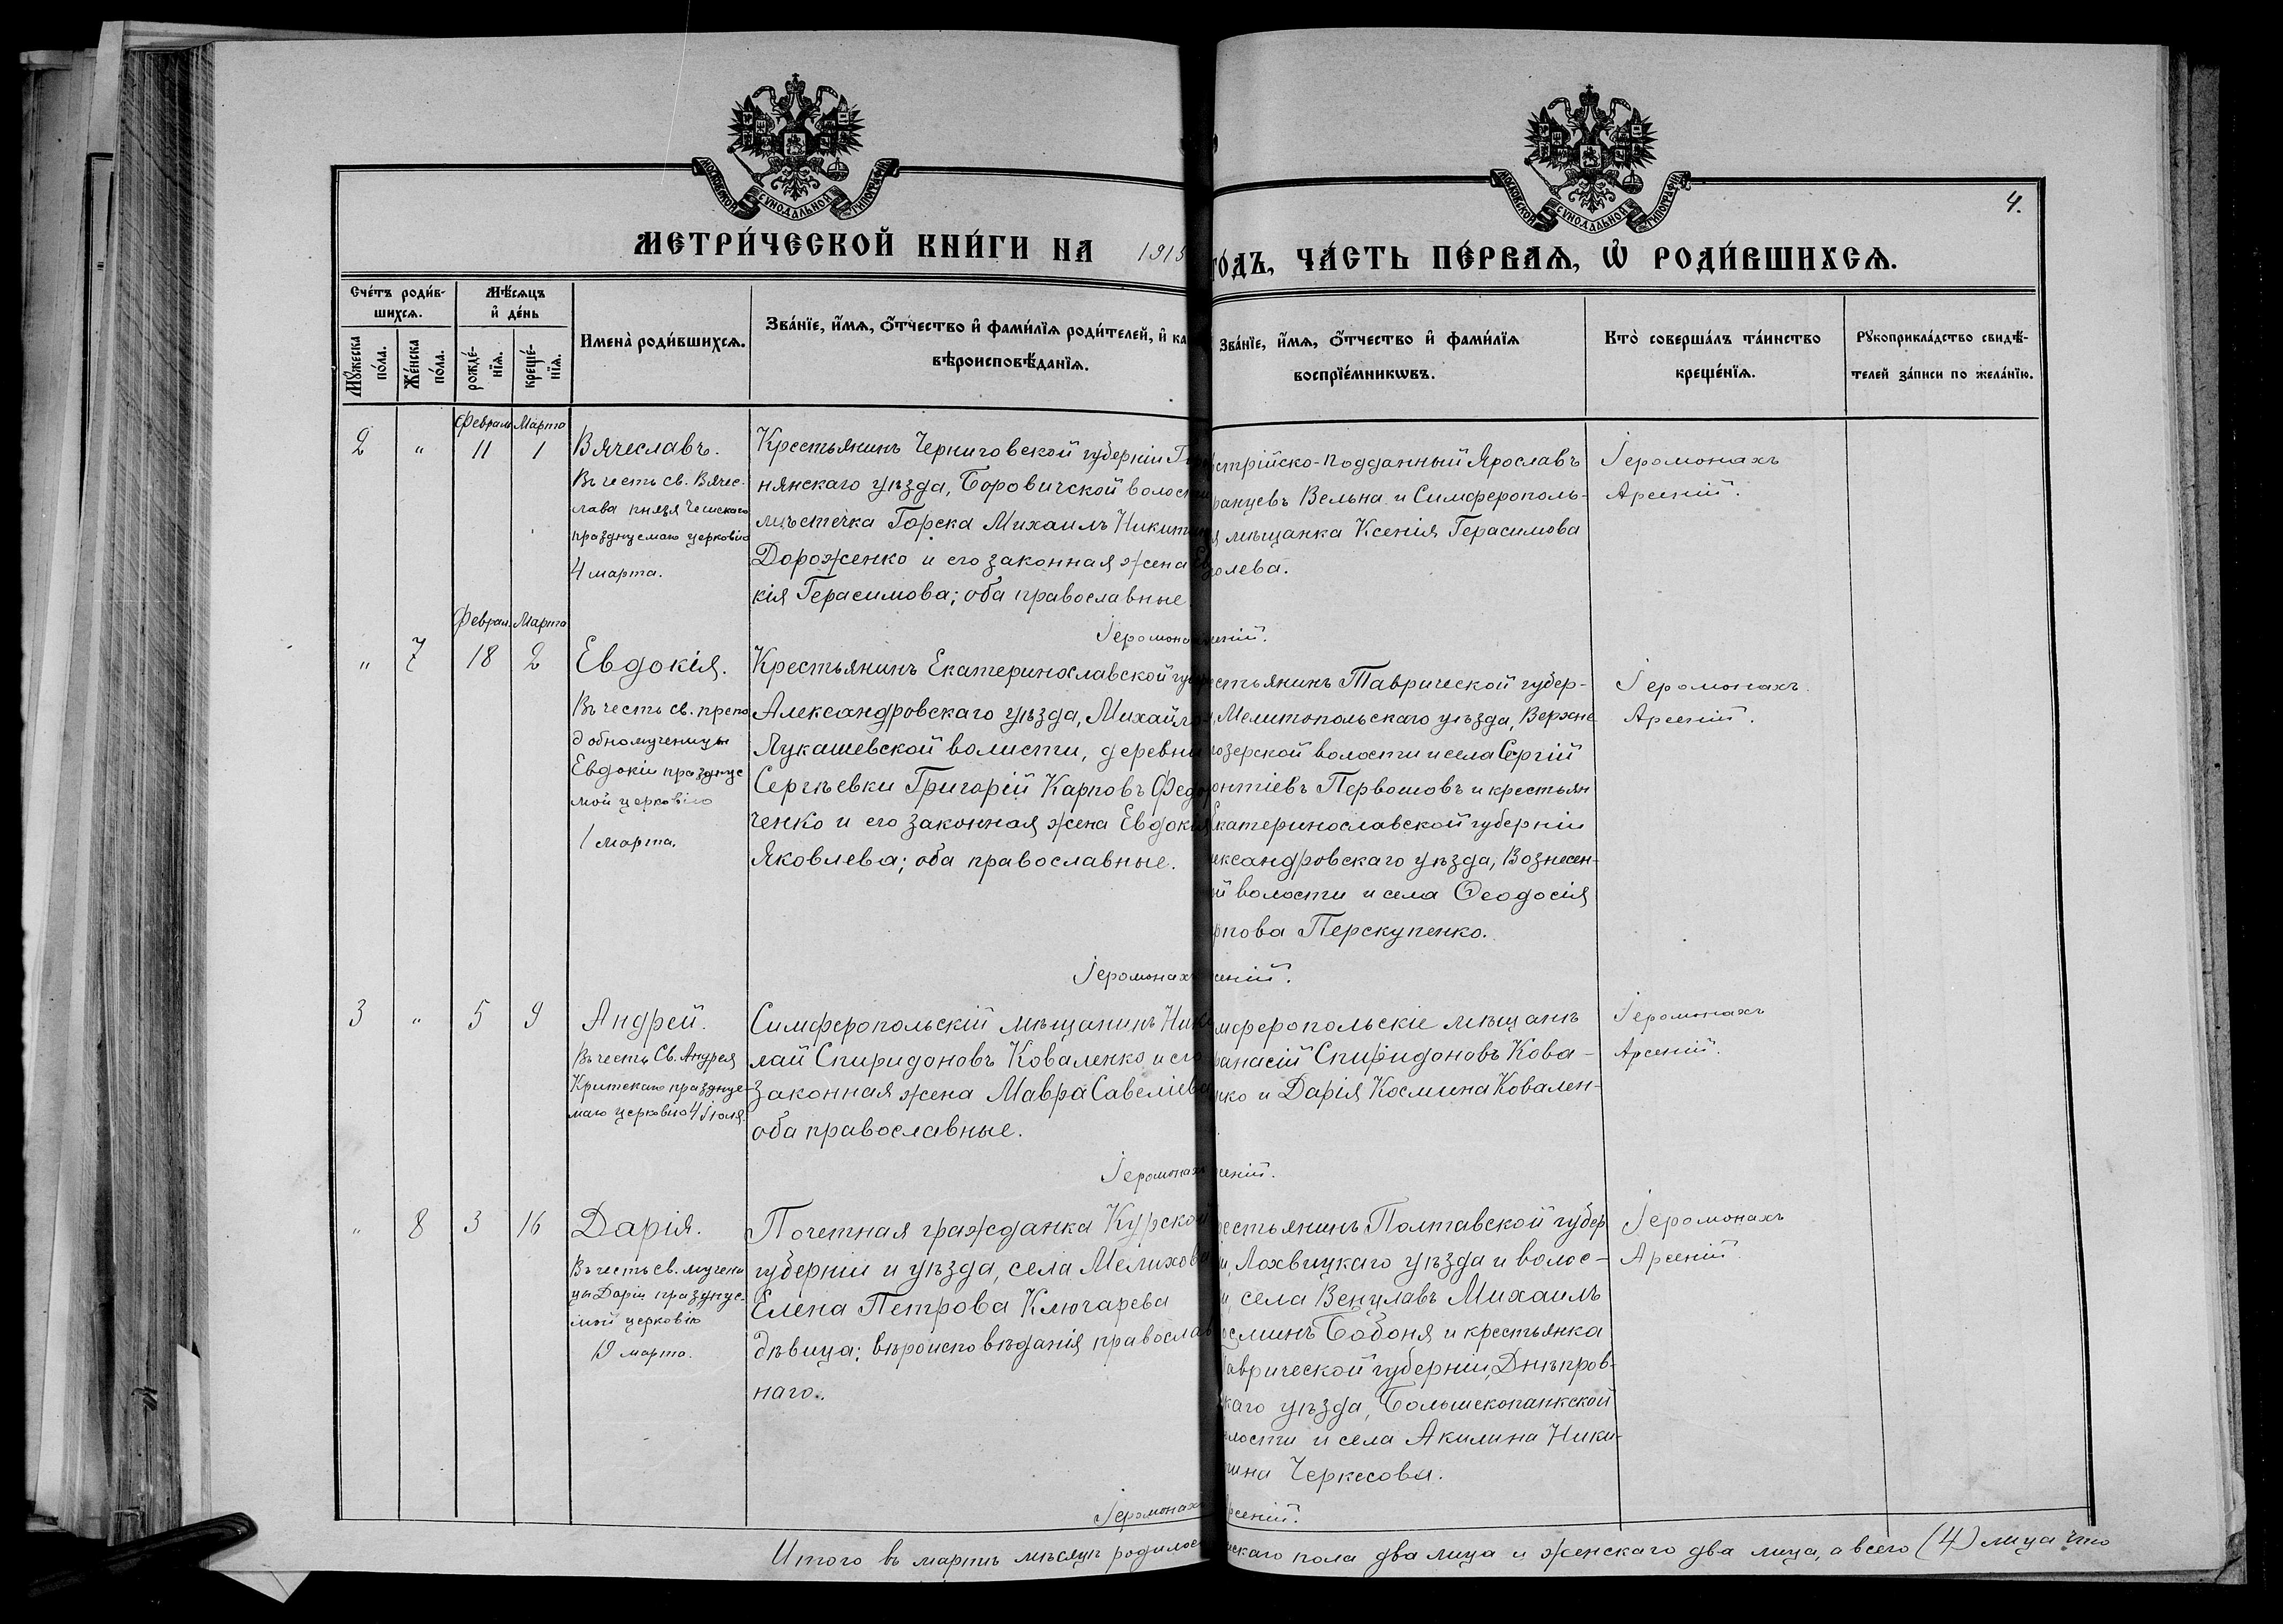 МОСКОВСКОЙ СѴНОДАЛЬНОЙ ТИПОГРАФІИ
МОСКОВСКОЙ СѴНОДАЛЬНОЙ ТИПОГРАФІИ
4.
МЕТРИ́ЧЕСКОЙ КНИ́ГИ НА 1913
ГО́ДЪ, ЧА́СТЬ ПЕ́РВАѦ, Ѡ҆ РОДИ́ВШИХСѦ.
Сче́тъ роди́в-
шихсѧ.
Мꙋ́жеска
по́ла.
Же́нска
по́ла.
Мѣ́сѧцъ
и҆ де́нь
рожде́-
нїѧ.
креще́-
нїѧ.
Имена̀ роди́вшихсѧ.
Зва́нїе, и҆́мѧ, ѻ҆́тчество и҆ фами́лїѧ роди́телей, и҆ ка
вѣроисповѣ́данїѧ.
Зва́нїе, и҆́мѧ, ѻ҆́тчество и҆ фами́лїѧ
воспрїе́мникѡвъ.
Кто̀ соверша́лъ та́инство
креще́нїѧ.
Рꙋкоприкла́дство свидѣ́-
телей за́писи по жела́нїю.
Февраль Марта
2 " 11 1
Вячеславъ.
Въ честь св. Вячес-
лава князя Чешскаго
празднуемаго церковію
4 марта.
Крестьянинъ Черниговской губерніи Горо
нянскаго уѣзда, Боровичской волости
мѣстечка Горска Михаилъ Никитинъ
Дороженко и его законная жена Ев
кія Герасимова; оба православные
стрійско-подданный Ярославъ
ранцевъ Вельна и Симферополь-
я мѣщанка Ксенія Герасимова
олева.
Іеромонахъ
Арсеній.
Іеромона сеній.
Феврал. Марта
" 7 18 2
Евдокія.
Въ честь св. препо
добномученицы
Евдокіи праздnуе
мой церковію
1 марта.
Крестьянинъ Екатеринославской губер
Александровскаго уѣзда, Михайло
Лукашевской волости, деревни
Сергѣевки Григорій Карповъ Федор
ченко и его законная жена Евдокія
Яковлева; оба православные.
естьянинъ Таврической губер-
, Мелитопольскаго уѣзда, Верхне
озерской волости и села Сергій
онтіевъ Первошовъ и крестьян
Екатеринославской губерніи
ександровскаго уѣзда, Вознесен-
ой волости и села Ѳеодосія
рпова Перскупенко.
Іеромонахъ
Арсеній.
Іеромонахъ сеній.
3 " 5 9
Андрей.
Въ честь Св. Андрея
Критскаго празднуе-
маго церковію 4 Іюля.
Симферопольскій мѣщанинъ Нико
лай Спиридоновъ Коваленко и его
законная жена Мавра Савеліева
оба православные.
мферопольскіе мѣщане
фанасій Спиридоновъ Кова-
нко и Дарія Космина Ковален-
Іеромонахъ
Арсеній.
Іеромонахъ сеній.
" 8 3 16
Дарія.
Въ честь св. мучени
цы Даріи празднуе-
мой церковію
19 марта.
Почетная гражданка Курской
губерніи и уѣзда, села Мелихова
Елена Петрова Ключарева
дѣвица; вѣроисповѣданія православ
наго.
рестьянинъ Полтавской губер
и, Лохвицкаго уѣзда и волос-
и, села Венцлавъ Михаилъ
осминъ Бабоня и крестьянка
аврической губерніи, Днѣпров-
каго уѣзда, Большекопанкской
лости и села Акилина Ники-
ина Черкесова.
Іеромонахъ
Арсеній.
Іеромонахъ рсеній.
Итого въ мартѣ мѣсяцѣ родилось жскаго пола два лица и женскаго два лица, а всего (4) лица что